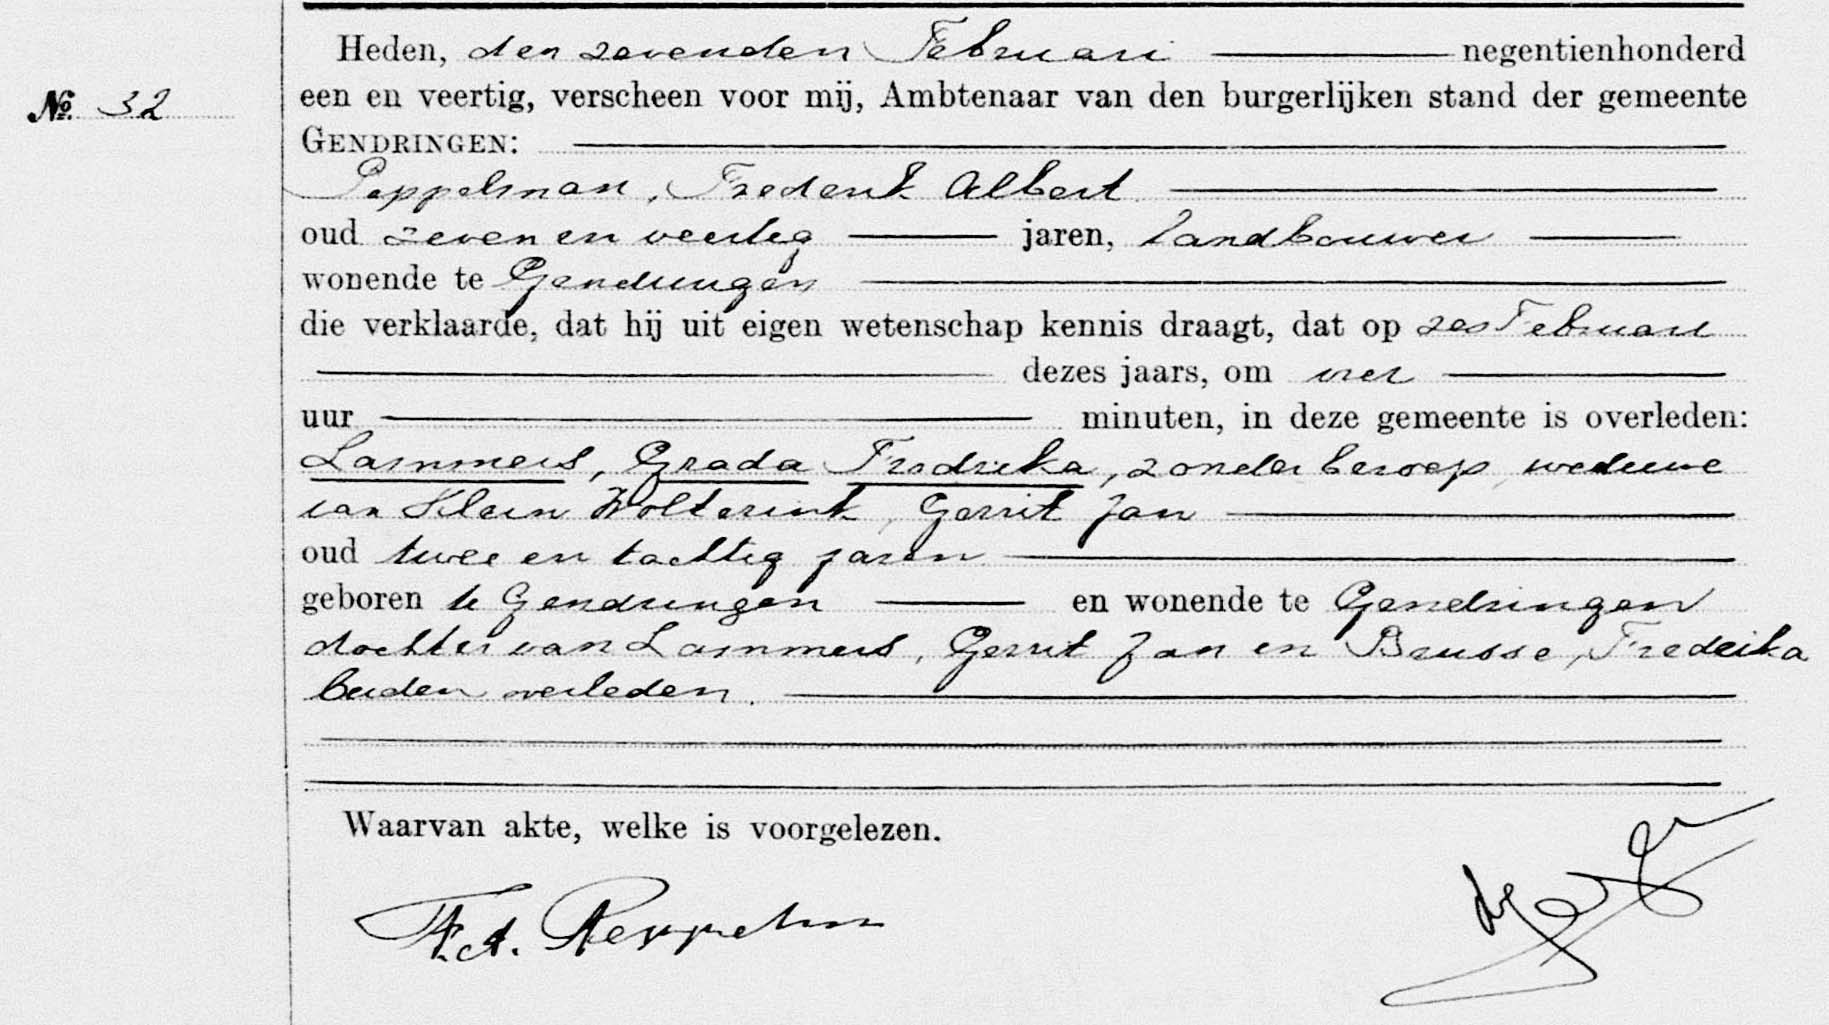 Heden, den zevenden Februari negentienhonderd
№ 32
een en veertig, verscheen voor mij, Ambtenaar van den burgerlijken stand der gemeente
GENDRINGEN:
Peppelman, Frederik Albert
oud zeven en veertig jaren, landbouwer
wonende te Gendringen
die verklaarde, dat hij uit eigen wetenschap kennis draagt, dat op zes Februari
dezes jaars, om vier
uur minuten, in deze gemeente is overleden:
Lammers, Grada Fredrika, zonder beroep, weduwe
van Klein Wolterink, Gerrit Jan
oud twee en tachtig jaren
geboren te Gendringen en wonende te Gendringen
dochter van Lammers, Gerrit Jan en Brusse, Fredrika
beiden overleden.
Waarvan akte, welke is voorgelezen.
F.A. Peppelman